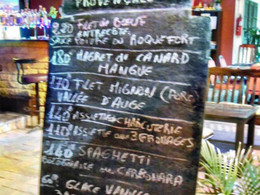 PROVENÇALE
220 FILET DE BŒUF
ENTRECÔTE
SAUCE POIVRE OU ROQUEFORT
180 MAGRET DE CANARD
MANGUE
170 FILET MIGNON (PORC)
VALLÉE D'AUGE
140 ASSIETTE CHARCUTERIE
110 ASSIETTE AUX 3 FROMAGES
140 SPAGHETTI
BOLOGNAISE OU CARBONARA
60 GLACE VANILLE